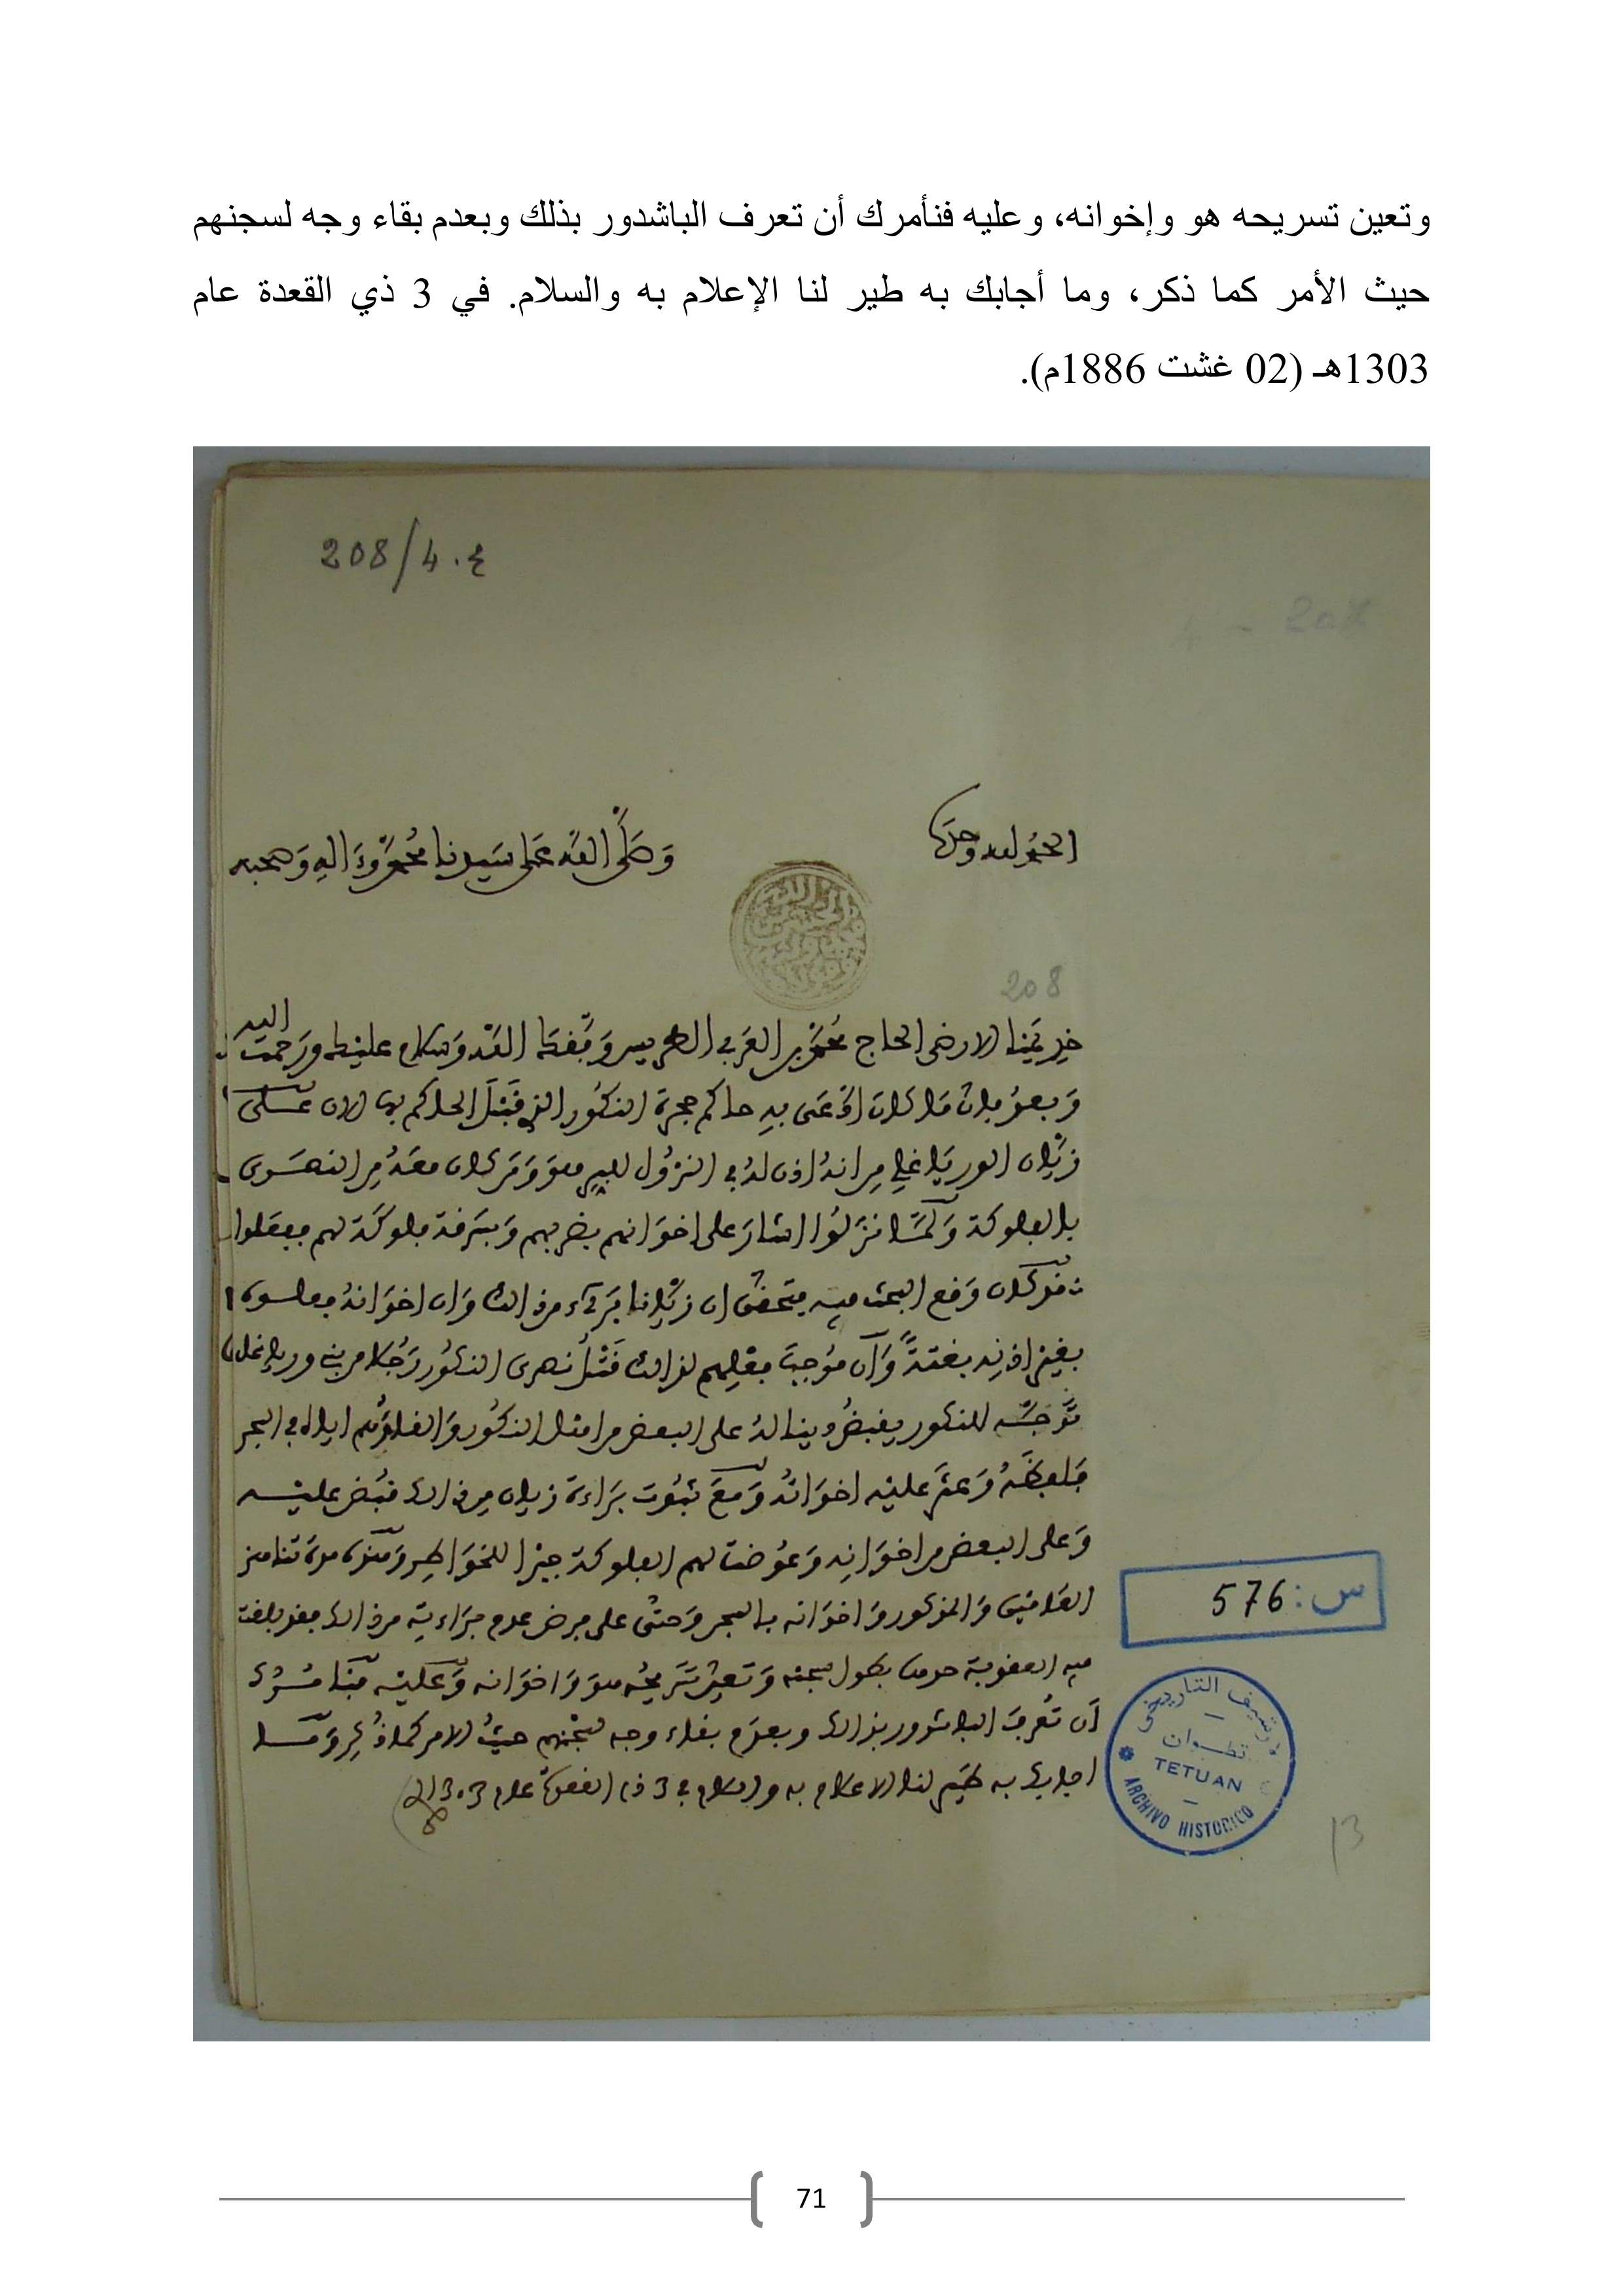 وتعين تسريحه هو وإخوانه، وعليه فنأمرك أن تعرف الباشدور بذلك وبعدم بقاء وجه لسجنهم
حيث الأمر كما ذكر، وما أجابك به طير لنا الإعلام به والسلام. في 3 ذي القعدة عام
1303هـ (02 غشت 1886م).
208/4.ع
4 - 208
الحمد لله وحده
وصلى الله على سيدنا محمد وءاله وصحبه
208
خديمنا الارضى الحاج محمد بن العربي الطريس وفقك الله وسلام عليك ورحمت الله
وبعد فان ما كان ادعى به حاكم حجرة النكور الذي قبل الحاكم بها الان على
زيان الورياغلي من انه اذن له في النزول للبر هو ومن كان معه من النصرى
بالفلوكة ولما نزلوا اشار على اخوانهم بضربهم وبسرقة فلوكة لهم ففعلوا
قد كان وقع البحث فيه فتحقق ان زيانا بريء من ذالك وان اخوانه
بغير اذنه بغتة وان موجب فعلهم لذالك قتل نصرى النكور رجلا من بني ورياغل
توجه للنكور يقبض دينا له على البعض من اهل النكور والقاؤهم اياه في البحر
فلفظه وعثر عليه اخوانه ومع ثبوت براءة زيان من ذالك قبض عليه
وعلى البعض من اخوانه وعوضت لهم الفلوكة جبرا للخواطر ومنذ مدة تناهز
العامين والمذكور واخوانه بالسجن وحتى على فرض عدم براءته من ذالك فقد بلغت
فيه العقوبة حدها بطول سجنه وتعين تسريحه هو واخوانه وعليه فنامرك
ان تعرف الباشدور بذالك وبعدم بقاء وجه لسجنهم حيث الامر كما ذكر وما
اجابك به طير لنا الاعلام به والسلام في 3 ذي القعدة عام 1303
س: 576
أرشيف التاريخي
تطوان
TETUAN
ARCHIVO HISTORICO
13
71